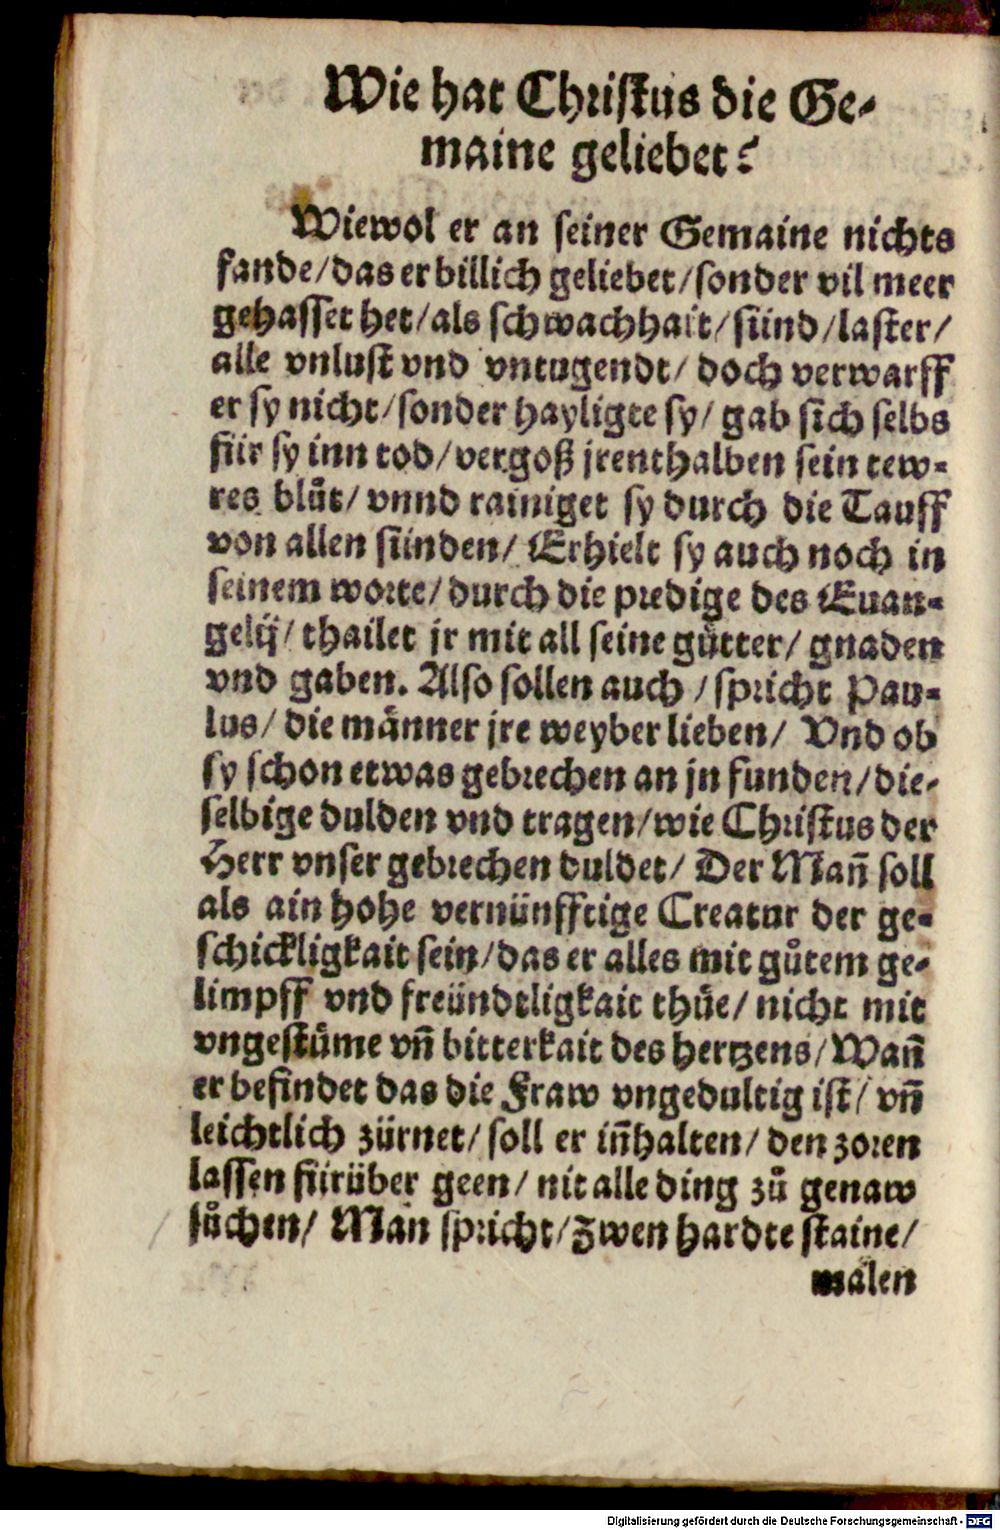 Wie hat Christus die Ge-
maine geliebet?
Wiewol er an seiner Gemaine nichts
fande/das er billich geliebet/sonder vil meer
gehasset het/als schwachhait/sünd/laster/
alle vnlust vnd vntugendt/ doch verwarff
er sy nicht/sonder hayligte sy/ gab sich selbs
für sy inn tod/vergoß jrenthalben sein tew-
res blůt/ vnnd rainiget sy durch die Tauff
von allen sünden/ Erhielt sy auch noch in
seinem worte/durch die predige des Euan-
gelij/ thailet jr mit all seine gůtter/ gnaden
vnd gaben. Also sollen auch /spricht Pau-
lus/ die männer jre weyber lieben/ Vnd ob
sy schon etwas gebrechen an jn funden/die-
selbige dulden vnd tragen/wie Christus der
Herr vnser gebrechen duldet/ Der Mañ soll
als ain hohe vernünfftige Creatur der ge-
schickligkait sein/das er alles mit gůtem ge-
limpff vnd freündtligkait thůe/ nicht mit
vngestůme vñ bitterkait des hertzens/Wañ
er befindet das die Fraw vngedultig ist/ vñ
leichtlich zürnet/ soll er iñhalten/ den zoren
lassen fürüber geen/ nit alle ding zů genaw
sůchen/ Man spricht/zwen hardte staine/
malen
Digitalisierung gefördert durch die Deutsche Forschungsgemeinschaft - DFG